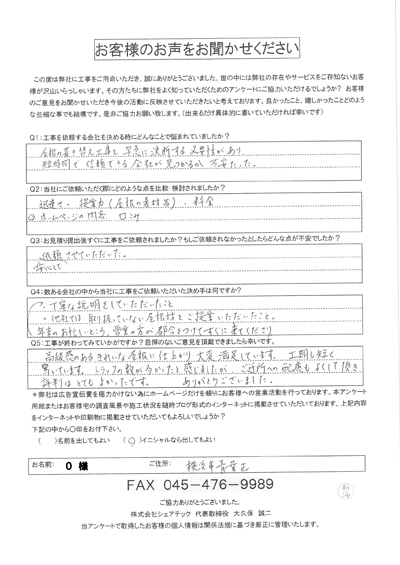 お客様のお声をお聞かせください
この度は弊社に工事をご用命いただき、誠にありがとうございました。世の中には弊社の存在やサービスをご存知ないお客
様が沢山いらっしゃいます。その方たちに弊社をよく知っていただくためのアンケートにご協力いただけるでしょうか？ お客様
のご意見をお聞かせいただき今後の活動に反映させていただきたいと考えております。良かったこと、嬉しかったことどのよう
な些細な事でも結構です。是非ご協力お願い致します。(出来るだけ具体的に書いていただければ幸いです)
Q1：工事を依頼する会社を決める時にどんなことで悩まれていましたか？
屋根の葺き替え工事を早急に決断する必要があり
短時間で信頼できる会社が見つかるか不安だった。
Q2：当社にご依頼いただく際にどのような点を比較・検討されましたか？
迅速さ・提案力(屋根の素材等)・料金
ホームページの内容 口コミ
Q3：お見積り提出後すぐに工事をご依頼されましたか？もしご依頼されなかったとしたらどんな点が不安でしたか？
依頼させていただいた。
安心して
Q4：数ある会社の中から当社に工事をご依頼いただいた決め手は何ですか？
・丁寧な説明をしていただいたこと
・他社では取り扱っていない屋根材をご提案いただいたこと。
年末のお忙しいところ、営業の方が都合をつけてすぐに来てくださり
Q5：工事が終わってみていかがですか？忌憚のないご意見を頂戴できましたら幸いです。
高級感のあるきれいな屋根に仕上がり大変満足しています。工期も短く
驚いています。トラックの数が多かったと感じましたが、ご近所への配慮もよくして頂き
評判はとてもよかったです。 ありがとうございました。
＊弊社は広告宣伝費を極力かけない為にホームページだけを頼りにお客様への営業活動を行っております。本アンケート
用紙またはお客様宅の調査風景や施工状況を随時ブログ形式のインターネットに掲載させていただいております。上記内容
をインターネットや印刷物に掲載させていただいてもよろしいでしょうか？
下記の中から〇印をお付下さい。
( )名前を出してもよい (〇)イニシャルなら出してもよい
お名前： O 様 ご住所： 横浜市青葉区
FAX 045-476-9989
ご協力ありがとうございました。
株式会社シェアテック 代表取締役 大久保 誠二
当アンケートで取得したお客様の個人情報は関係法規に基づき厳正に管理いたします。